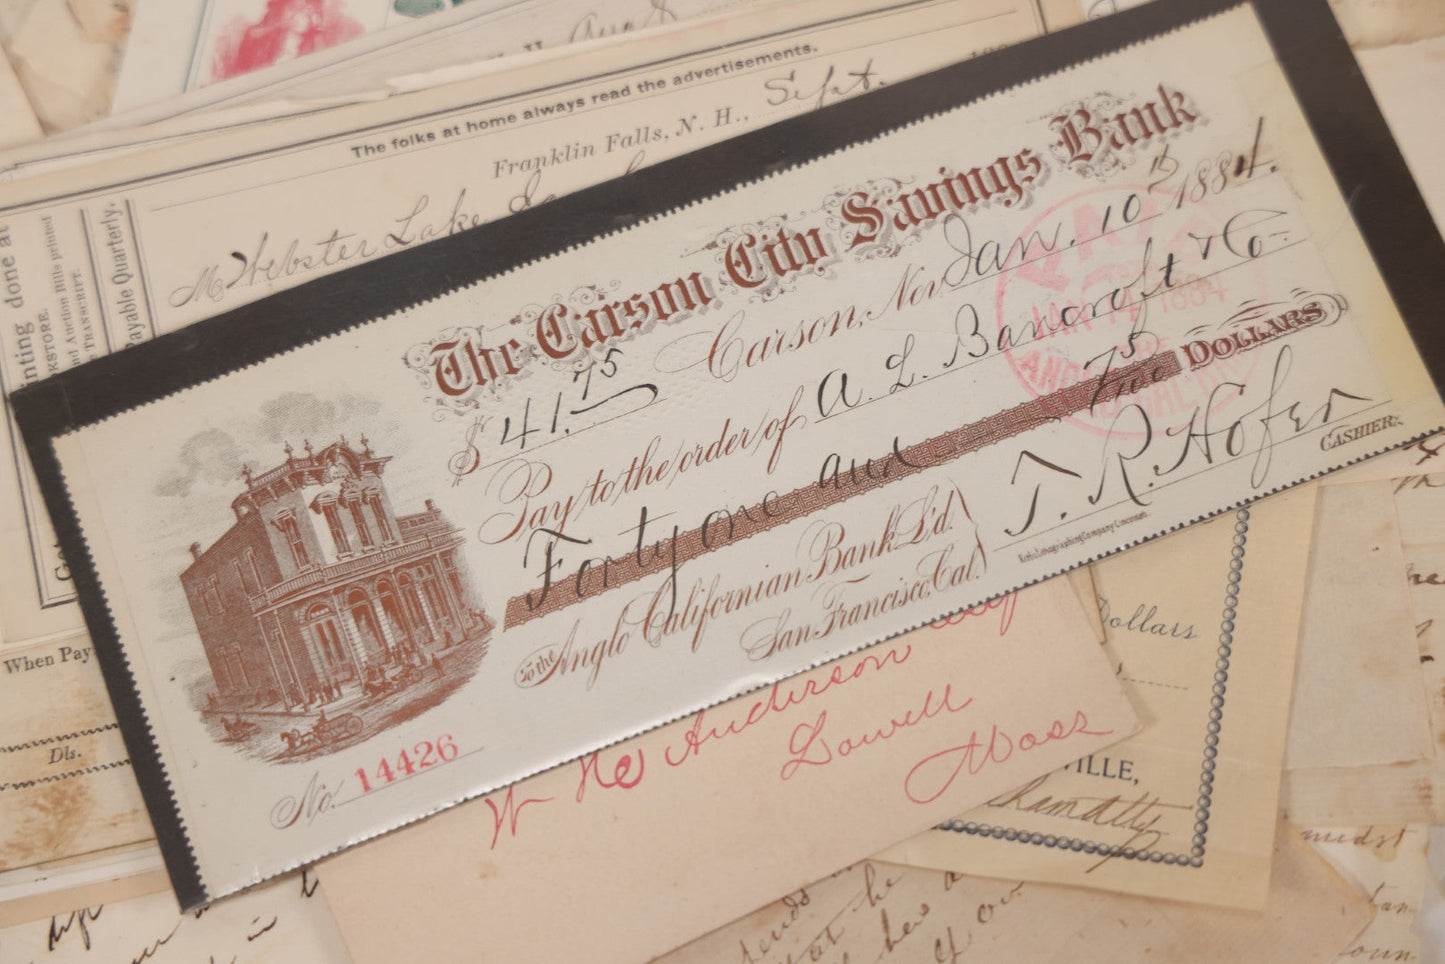 The folks at home always read the advertisements.
Franklin Falls, N. H., Sept.
M Webster Lake
inting done at
KSTORE.
nd Auction Bills printed
TRANSCRIPT.
Payable Quarterly.
When Pay
Dls.
The Carson City Savings Bank
Carson, Nev Jan. 10th 1884.
$41.75
Pay to the order of A. L. Bancroft & Co
Forty one and 75 DOLLARS
To the Anglo Californian Bank L'd.
San Francisco, Cal.
T. R. Hofer
CASHIER.
No. 14426
PAID
JAN 14 1884
W He Anderson
Lowell
Mass
Dollars
VILLE,
midst